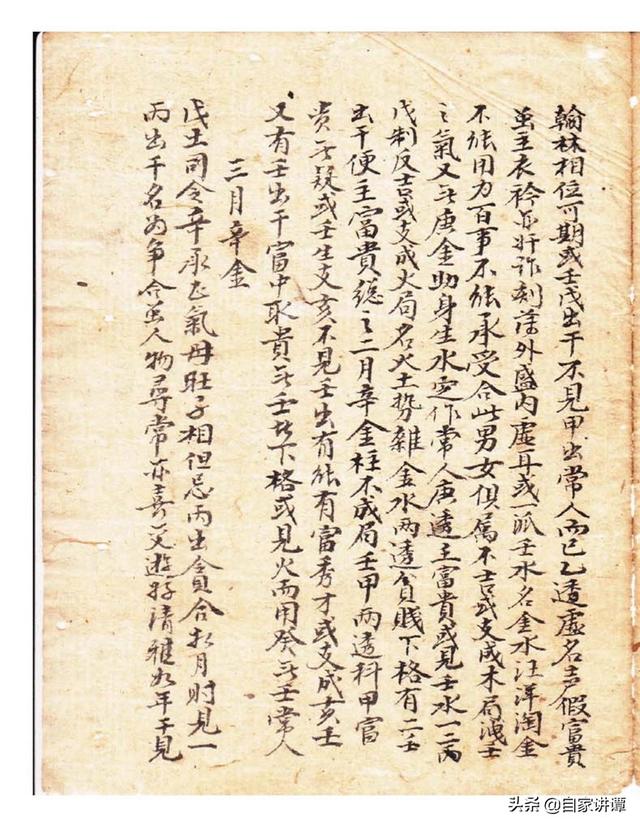 翰林相位可期或壬戊出干不見甲出常人而已乙透虛名声假富貴
虽主衣衿亦奸詐刻薄外盛内虛耳或一派壬水名金水汪洋淘金
不能用力百事不能承受合此男女俱為不吉或支成木局洩壬
之氣又无庚金助身生水定作常人庚透主富貴或見壬水一二丙
戊制反吉或支成火局名火土势雜金水两透貧賤下格有二壬
出干便主富貴總之二月辛金柱不成局壬甲两透科甲官
貴无疑或壬生支亥不見壬出有能有富秀才或支成亥壬
又有壬出干富中取貴无壬於下格或見火而用癸无壬常人
三月辛金
戊土司令辛承正氣母旺子相但忌丙出貪合於月时見一
丙出干名为争合虽人物尋常亦喜交遊好清雅如年干見
头条 @自家讲谭